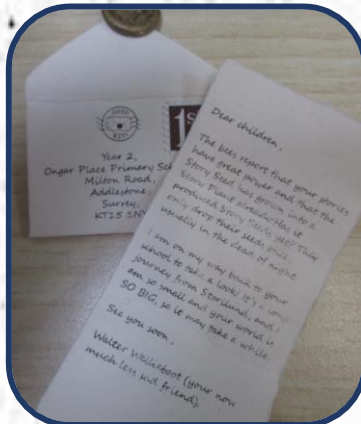 1st
Year 2,
Ongar Place Primary Sch
Milton Road,
Addlestone,
Surrey,
KT15 1NY
Dear children,
The bees report that your stories
have great power and that the
Story Seed has grown into a
Story Plant already! Has it
produced Story Seeds yet? They
only drop their seeds once,
usually in the dead of night.
I am on my way back to your
school to take a look! It's a long
journey from Storyland, and I
am so small and your world is
SO BIG, so it may take a while.
See you soon,
Walter Wellieboot (your now
much less sad friend).